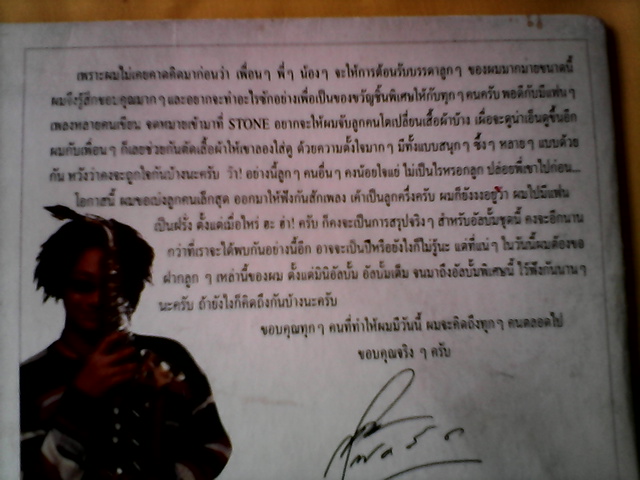 เพราะผมไม่เคยคาดคิดมาก่อนว่า เพื่อนๆ พี่ๆ น้องๆ จะให้การต้อนรับบรรดาลูกๆ ของผมมากมายขนาดนี้
ผมจึงรู้สึกขอบคุณมากๆ และอยากจะทำอะไรซักอย่างเพื่อเป็นของขวัญชิ้นพิเศษให้กับทุกๆ คนครับ พอดีกับมีแฟนๆ
เพลงหลายคนเขียน จดหมายเข้ามาที่ STONE อยากจะให้ผมจับลูกคนโตเปลี่ยนเสื้อผ้าบ้าง เผื่อจะดูน่าเอ็นดูขึ้นอีก
ผมกับเพื่อนๆ ก็เลยช่วยกันตัดเสื้อผ้าให้เขาลองใส่ดู ด้วยความตั้งใจมากๆ มีทั้งแบบสนุกๆ ซึ้งๆ หลายๆ แบบด้วย
กัน หวังว่าคงจะถูกใจกันบ้างนะครับ ว้า! อย่างนี้ลูกๆ คนอื่นๆ คงน้อยใจแย่ ไม่เป็นไรหรอกลูก ปล่อยพี่เขาไปก่อน...
โอกาสนี้ ผมขอเบ่งลูกคนเล็กสุด ออกมาให้ฟังกันสักเพลง เค้าเป็นลูกครึ่งครับ ผมก็ยังงงอยู่ว่า ผมไปมีแฟน
เป็นฝรั่ง ตั้งแต่เมื่อไหร่ ฮะ ฮ่า! ครับ ก็คงจะเป็นการสรุปจริงๆ สำหรับอัลบั้มชุดนี้ คงจะอีกนาน
กว่าที่เราจะได้พบกันอย่างนี้อีก อาจจะเป็นปีหรือยังไงก็ไม่รู้นะ แต่ที่แน่ๆ ในวันนี้ผมต้องขอ
ฝากลูก ๆ เหล่านี้ของผม ตั้งแต่มินิอัลบั้ม อัลบั้มเต็ม จนมาถึงอัลบั้มพิเศษนี้ ไว้ฟังกันนานๆ
นะครับ ถ้ายังไงก็คิดถึงกันบ้างนะครับ
ขอบคุณทุกๆ คนที่ทำให้ผมมีวันนี้ ผมจะคิดถึงทุกๆ คนตลอดไป
ขอบคุณจริง ๆ ครับ